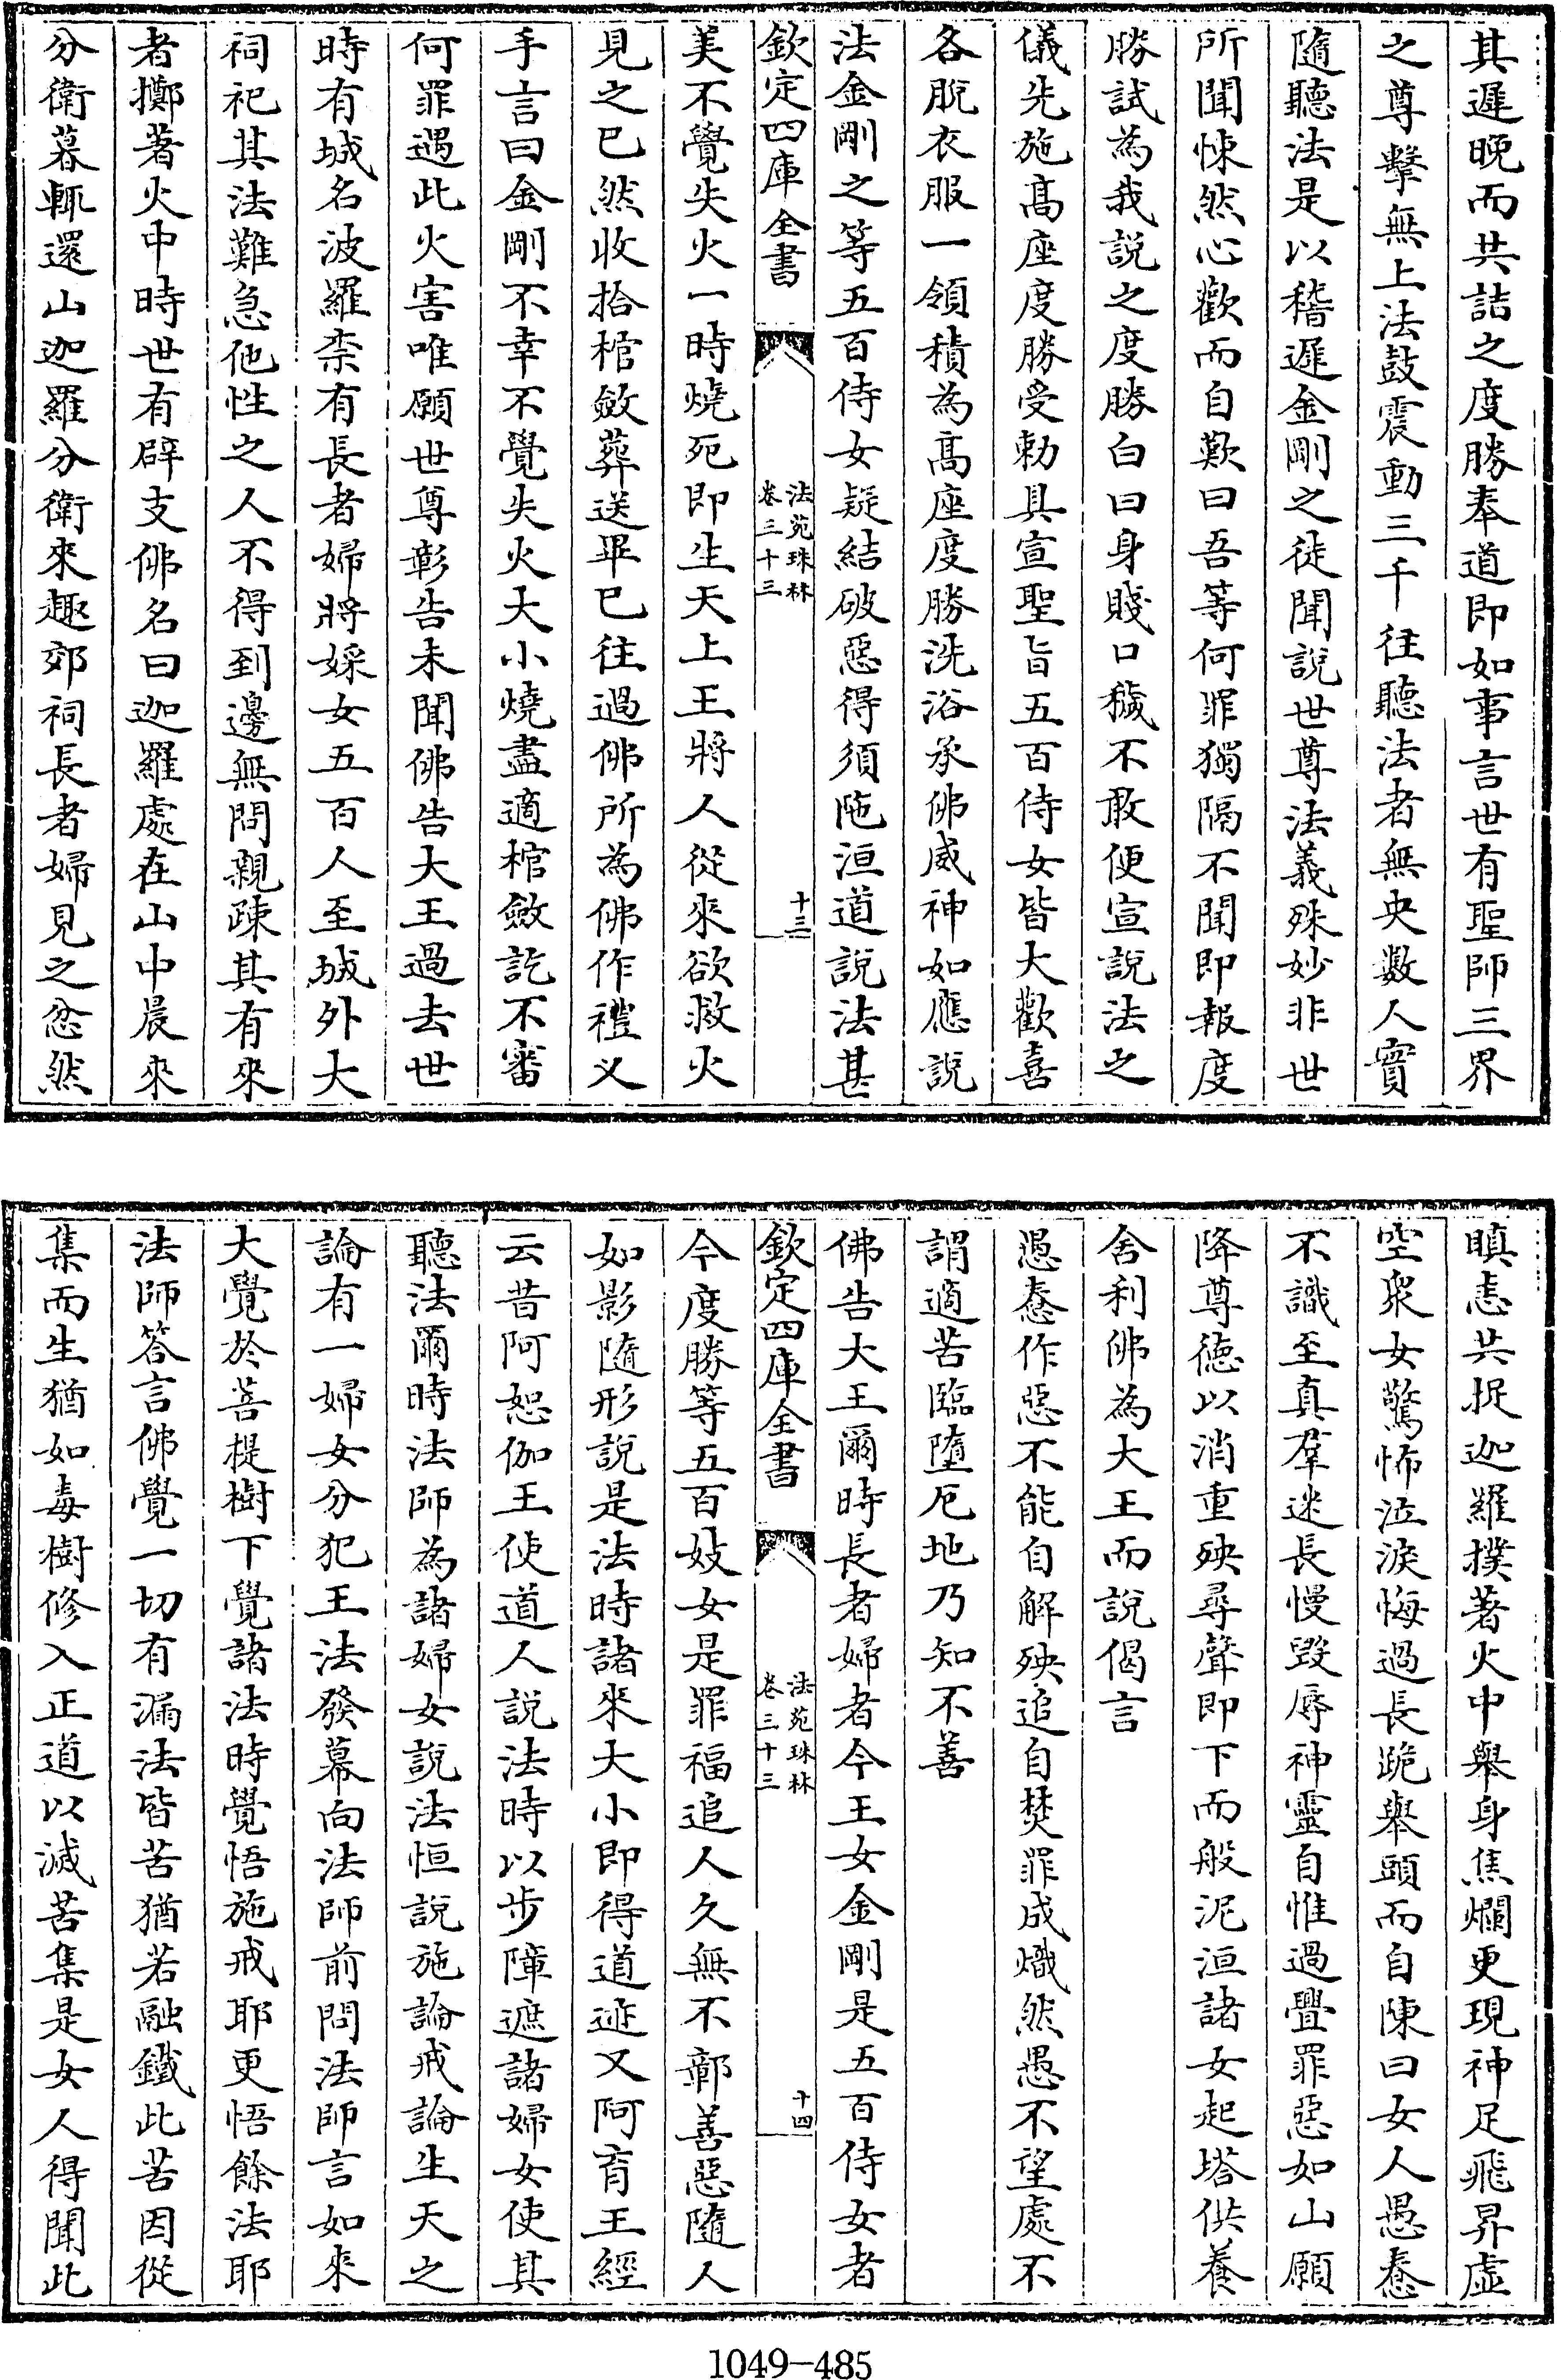 其遲晚而共詰之度勝奉道即如事言世有聖師三界
之尊擊無上法鼓震動三千往聽法者無央數人實
隨聽法是以稽遲金剛之徒聞說世尊法義殊妙非世
所聞悚然心歡而自歎曰吾等何罪獨隔不聞即報度
勝試為我說之度勝白曰身賤口穢不敢便宣說法之
儀先施髙座度勝受勅具宣聖旨五百侍女皆大歡喜
各脫衣服一領積為髙座度勝洗浴承佛威神如應說
法金剛之等五百侍女疑結破惡得須陁洹道說法甚
欽定四庫全書
法苑珠林
卷三十三
十三
美不覺失火一時燒死即生天上王將人從來欲救火
見之已然收拾棺斂葬送畢已往過佛所為佛作禮义
手言曰金剛不幸不覺失火大小燒盡適棺斂訖不審
何罪遇此火害唯願世尊彰告未聞佛告大王過去世
時有城名波羅柰有長者婦將婇女五百人至城外大
祠祀其法難急他性之人不得到邊無問親疎其有來
者擲著火中時世有辟支佛名曰迦羅處在山中晨來
分衛暮輒還山迦羅分衛來趣郊祠長者婦見之忿然
瞋恚共捉迦羅撲著火中舉身焦爛更現神足飛昇虛
空衆女驚怖泣淚悔過長跪舉頭而自陳曰女人愚惷
不識至真羣迷長慢毀辱神靈自惟過舋罪惡如山願
降尊德以消重殃尋聲即下而般泥洹諸女起塔供養
舍利佛為大王而說偈言
愚惷作惡不能自解殃追自焚罪成熾然愚不望處不
謂適苦臨墮厄地乃知不善
佛告大王爾時長者婦者今王女金剛是五百侍女者
欽定四庫全書
法苑珠林
卷三十三
十四
今度勝等五百妓女是罪福追人久無不彰善惡隨人
如影隨形說是法時諸來大小即得道迹又阿育王經
云昔阿恕伽王使道人說法時以步障遮諸婦女使其
聽法爾時法師為諸婦女說法恒說施論戒論生天之
論有一婦女分犯王法發幕向法師前問法師言如來
大覺於菩提樹下覺諸法時覺悟施戒耶更悟餘法耶
法師答言佛覺一切有漏法皆苦猶若融鐵此苦因從
集而生猶如毒樹修入正道以滅苦集是女人得聞此
1049-485